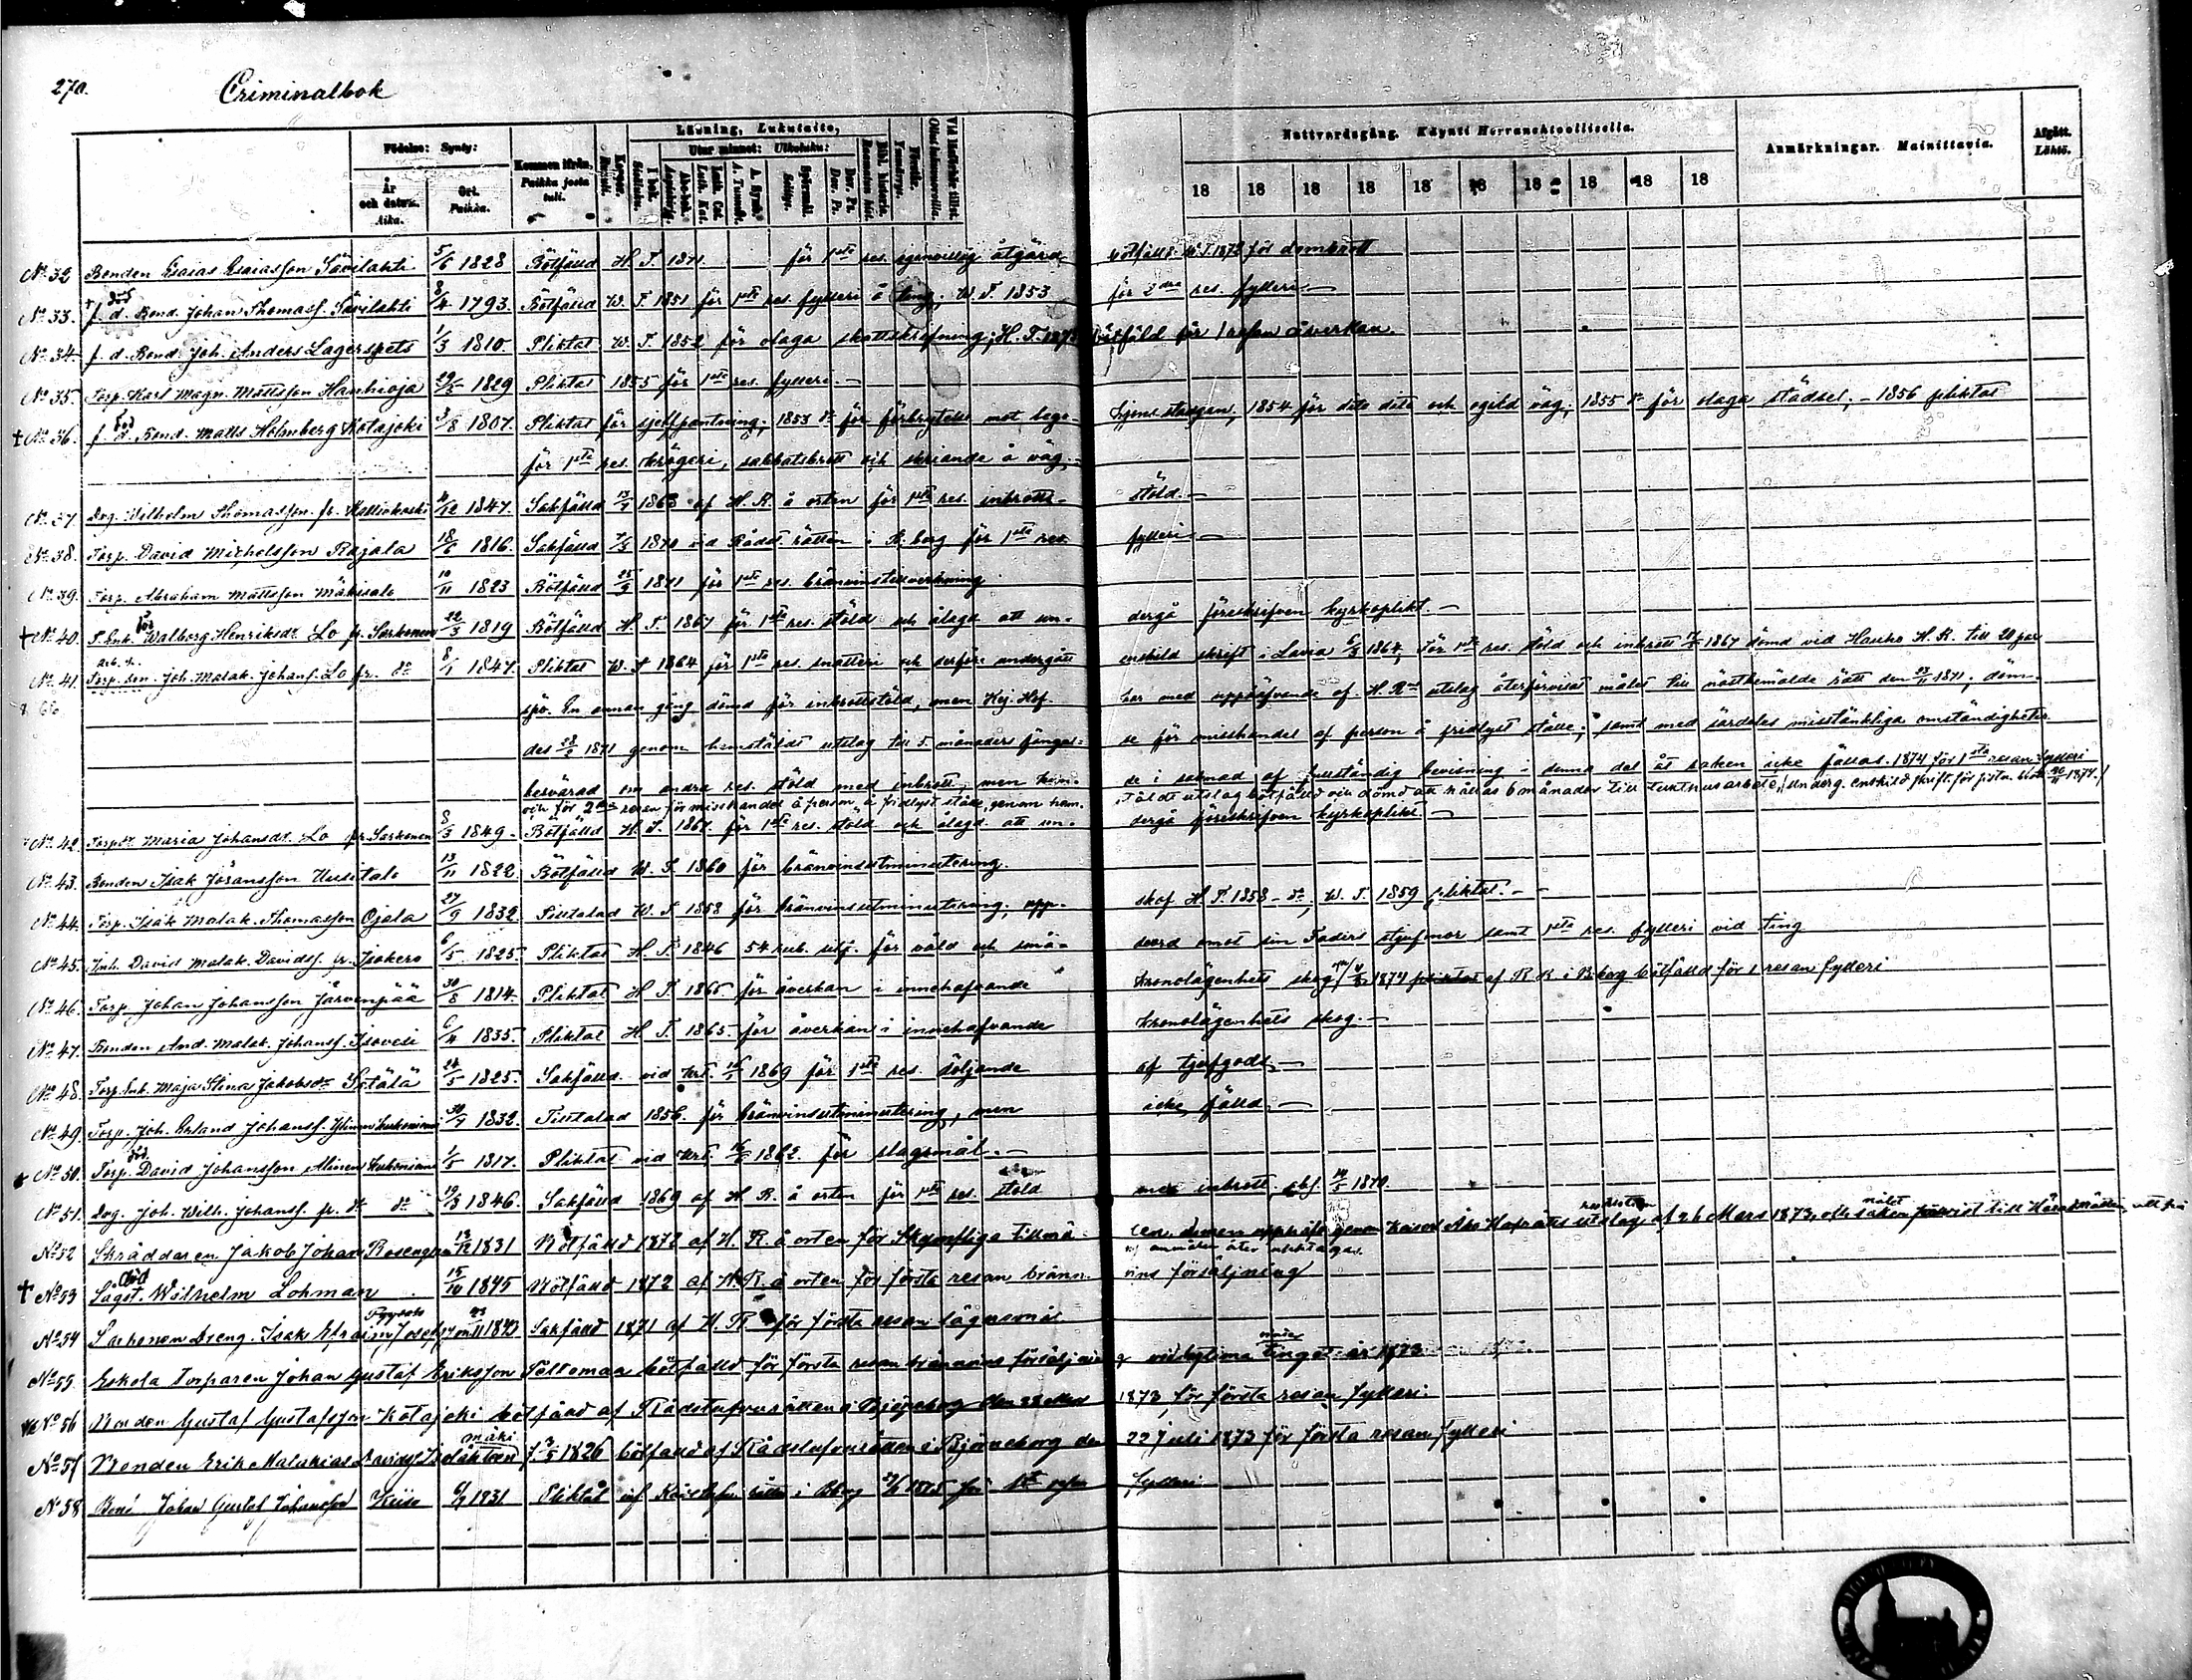 270.
Criminalbok
Födelse: Synty:
År och datum. Aika.
Ort. Paikka.
Kommen ifrån, Paikka josta tuli.
Läsning, Lukutaito,
Utur minnet: Ulkoluku:
Nattvardsgång. Käynti Herranehtoollisella.
18 18 18 18 18 18 18 18 18 18
Anmärkningar. Mainittavia.
Afgått. Lähtö.
No 32 Bonden Esaias Esaiasson Savilahti 5/6 1828 Bötfälld H. T. 1871 för 1sta res. egenvillig åtgärd bötfälld W. T. 1872 för dombrott
No 33. död f. d. Bond. Johan Thomasf. Savilahti 8/4 1793. Bötfälld W. T. 1851 för 1sta res. fylleri å ting; W. T. 1853 för 2dra res. fylleri.—
No 34 f. d. Bond. Joh. Anders Lagerspets 1/3 1810. Pliktat W. T. 1852 för olaga skattskrefning; H. T. 1873 bötfäld för åverkan.
No 35. Torp. Karl Magn. Mattsson Hanhioja 1829 Pliktat 1855 för 1sta res. fylleri.—
† No 36. död f. d. Bond. Matts Holmberg Kotajoki 3/8 1807. Pliktat för sjelfpantning; 1853 do för förbrytelse mot lego- hjons stadgan, 1854 för dito dito och ogild väg; 1855 do för olaga städsel; – 1856 pliktat
för 1sta res. krögeri, sabbatsbrott och skriande å väg.
No 37. Drg. Wilhelm Thomasson fr. Kalliokoski 4/12 1847. Sakfälld 13/7 1868 af H. R. å orten för 1sta res. inbrotts- stöld.—
No 38. Torp. David Michelsson Rajala 18/6 1816. Sakfälld 7/3 1870 vid Rådst. rätten i B.borg för 1sta res. fylleri.—
No 39. Torp. Abraham Mattsson Mäkisalo 10/11 1823 Bötfälld 25/9 1871 för 1sta res. bränvinstillverkning
† No 40. död T. Enk. Walborg Henriksdr Lo fr. Sarkonen 22/3 1819 Bötfälld H. T. 1867 för 1sta res. stöld och ålagd att un- dergå föreskrifven kyrkoplikt.—
No 41. Torp. son. Joh. Malak. Johansf. Lo fr. do 8/1 1847. Pliktat W. T. 1864 för 1sta res. snatteri och derför undergått enskild skrift i Lavia 6/3 1864; För 1sta res. stöld och inbrott 1867 dömd vid Hauho H. R. till 20 par
spö. En annan gång dömd för inbrottsstöld, men Kej. Hof. har med upphäfvande af H. Rns utslag återförvisat målet till nästbemälde rätt den 27/11 1871; döm-
des 1871 genom hemstäldt utslag till 5 månaders fängel- se för misshandel af person å fridlyst ställe; samt med särdeles misstänkliga omständigheter
besvärad om andra res. stöld med inbrott, men kun- de i saknad af fullständig bevisning i denna del åt saken icke fällas. 1874 för 1sta resan fylleri
och för 2dra resan för misshandel å person å fridlyst ställe, genom hem- stäldt utslag bötfälld och dömd att hållas 6 månader till tukthusarbete;
No 42. Torpdr Maria Johansdr. Lo fr. Sarkonen 8/3 1849. Bötfälld H. T. 1867. för 1sta res. stöld och ålagd att un- dergå föreskrifven kyrkoplikt.—
No 43. Bonden Isak Johansson Uusitalo 13/11 1822. Bötfälld W. T. 1860 för bränvinsutminutering.
No 44. Torp. Isak Malak. Thomasson Ojala 27/9 1832. Tilltalad W. T. 1858 för bränvinsutminutering, upp- skof H. T. 1858 – do, W. T. 1859 pliktat.—
No 45. Inh. David Malak. Davidsf. fr. Isokero 6/5 1825. Pliktat H. T. 1846 54 rub. för våld och små- sord emot sin Faders styfmor samt 1sta res. fylleri vid ting
No 46. Torp. Johan Johansson Järvenpää 30/8 1814. Pliktat H. T. 1865. för åverkan i innehafvande kronolägenhets skog. 1874 af R R i B.borg bötfälld för 1 resan fylleri
No 47. Bonden And. Malak. Johansf. Isovesi 6/4 1835. Pliktat H. T. 1865. för åverkan i innehafvande kronolägenhets skog.—
No 48. Torp. Enk. Maja Stina Jakobsdr Sotälä 24/5 1825. Sakfälld vid Urt. 1869 för 1sta res. döljande af tjufgods.—
No 49. Torp. Joh. Erland Johansf. 30/7 1832. Tilltalad 1856. för bränvinsutminutering, men icke fälld.—
No 50. död Torp. David Johansson Alinen 1/5 1817. Pliktat vid Urt. 1862. för slagsmål.—
No 51. Drg. Joh. Wilh. Johansf. fr. do do 19/3 1846. Sakfälld 1869 af H. R. å orten för 1sta res. stöld med inbrott, 1870
No 52 Skräddaren Jakob Johan Rosengren 13/12 1831 Bötfälld 1872 af H. R. å orten för Skymfliga tillmä- len. Åbo Hofrätts utslag af 26 Mars 1873, målet till Häradsrätten
† No 53 död Sågst. Wilhelm Lohman 15/10 1845 Bötfälld 1872 af H. R. å orten för första resan bränn- vins försäljning
No 54 Sarkonen Dreng. Isak Efraim Josefsson 1843 Sakfälld 1871 af H. R. för första resan lägersmål.
No 55 Eskola Torparen Johan Gustaf Eriksson Peltomaa bötfälld för första resan bränvins försäljning vid tinget år 1873
No 56 Bonden Gustaf Gustafsson Kotajoki bötfälld af Rådstufvurätten i Björneborg den 1873 för första resan fylleri.
No 57 Bonden Erik Malakias Davidsf. 1826 bötfälld af Rådstufvurätten i Björneborg den 22 Juli 1873 för första resan fylleri
No 58 Bond Johan Gustaf Johansson 1831 Pliktat af rätten i Bborg fylleri